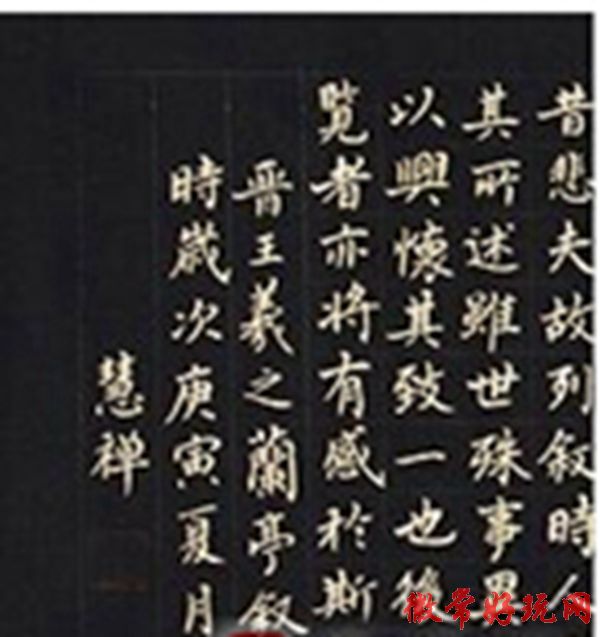 昔悲夫故列叙時人
其所述雖世殊事異
以興懷其致一也後
覧者亦将有感於斯
晋王羲之蘭亭叙
時歳次庚寅夏月
慧禅
徽常好玩网